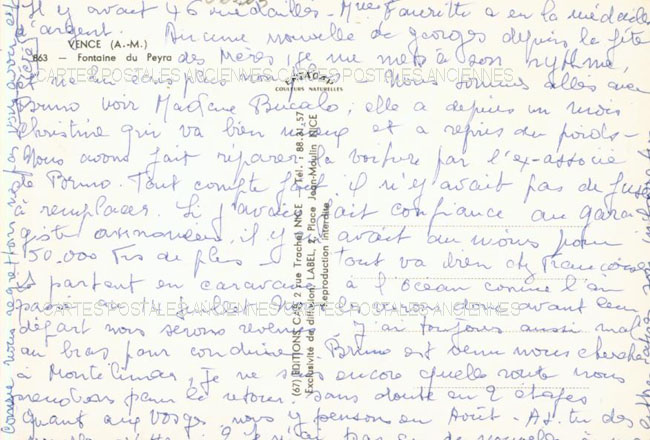 Il y avait 46 médailles. Mme Fauritte a eu la médaille
d'argent. Aucune nouvelle de Georges depuis la fête
des Mères, je me mets à son rythme,
VENCE (A.-M.)
863 — Fontaine du Peyra
CARTES POSTALES ANCIENNES CARTES POSTALES ANCIENNES
COULEURS NATURELLES
Nous sommes allés avec
Bruno voir Madame Bucalo; elle a depuis un mois
Christine qui va bien mieux et a repris du poids -
Nous avons fait réparer la voiture par l'ex-associé
de Bruno. Tout compte fait il n'y avait pas de
à remplacer. Si j'avais fait confiance au gara
giste annonceen, il y en avait au moins pour
150.000 Frs de plus - tout va bien chez Françoise
Ils partent en caravane à l'océan comme l'an
passé au 1er juillet. Nous avant leur
CARTES POSTALES ANCIENNES CARTES POSTALES ANCIENNES
départ nous serons revenus. J'ai toujours aussi mal
au bras pour conduire. Bruno est venu nous chercher
à Montélimar, je ne sais encore quelle route nous
prendrons pour le retour, sans doute en 2 étapes.
Quant aux Vosges, nous y pensons en Août - As-tu des
(67) EDITIONS CAP, 2 rue Trachel NICE Tél.: 88.31.57
Exclusivité de diffusion LABEL, 2, Place Jean-Moulin NICE
Reproduction interdite
Comme nous regrettons de ne pas vous avoir